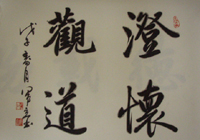 澄懷
觀道
戊子春月